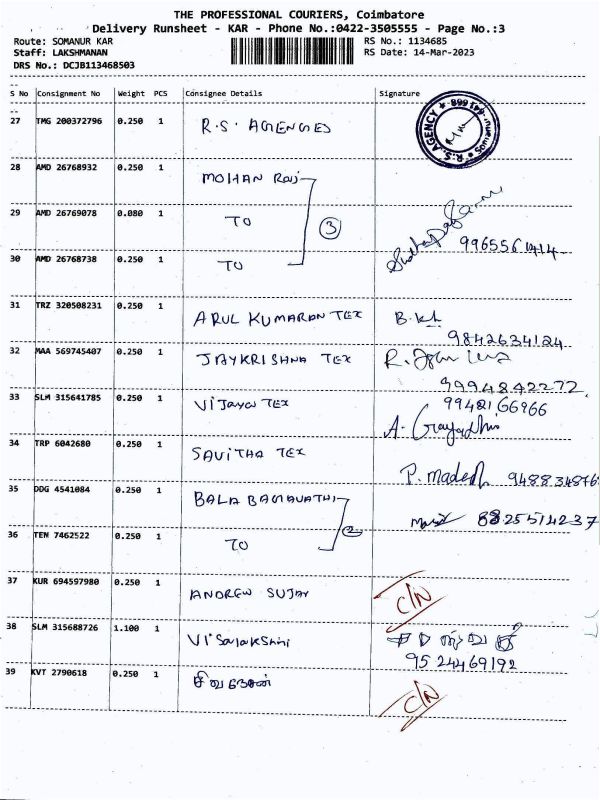 THE PROFESSIONAL COURIERS, Coimbatore
Delivery Runsheet - KAR - Phone No.:0422-3505555 - Page No.:3
Route: SOMANUR KAR
RS No.: 1134685
Staff: LAKSHMANAN
RS Date: 14-Mar-2023
DRS No.: DCJB113468503
S No Consignment No Weight PCS Consignee Details Signature
27 TMG 200372796 0.250 1 R.S. AGENCIES R.S. AGENCY
28 AMD 26768932 0.250 1 MOHAN Raj
29 AMD 26769078 0.080 1 TO 3
30 AMD 26768738 0.250 1 TO
31 TRZ 320508231 0.250 1 ARUL KUMARAN TEX
9842634124
32 MAA 569745407 0.250 1 JAYKRISHNA TEX
9994842272
33 SLM 315641785 0.250 1 Vijaya TEX 9948166966
A. Gayadhri
34 TRP 6042680 0.250 1 SAVITHA TEX
P. madesh
35 DDG 4541084 0.250 1 BALA BAGAVATHI
2 8825514237
36 TEN 7462522 0.250 1 TO
37 KUR 694597980 0.250 1 ANDREW SUJAY C/N
38 SLM 315688726 1.100 1 Visalakshini
9524469192
39 KVT 2790618 0.250 1 C/N